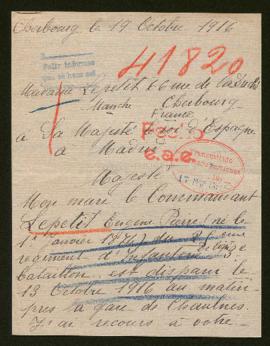 Cherbourg le 19 Octobre 1916
41820
Pedir informes
Madame Lepetit 66 rue de la
Manche Cherbourg
France
à Sa Majesté le roi d'Espagne
à Madrid
e.a.e.
Majesté
Mon mari le Commandant
Lepetit Eugène Pierre né le
1er janvier du
régiment d'infanterie
bataillon est disparu le
13 Octobre 1916 au matin
près la gare de Chaulnes.
J'ai recours à votre